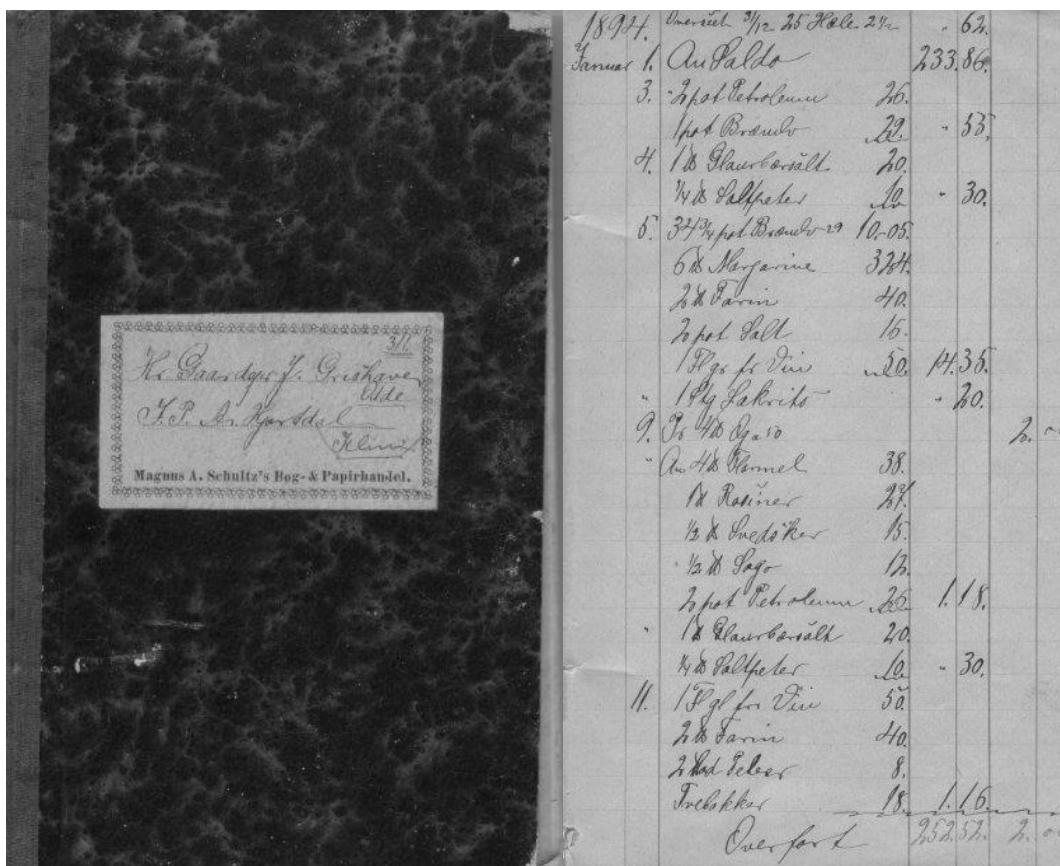 3/11
Hr. Gaardejer J. Grishave
Olde
J. P. A. Hjortdal
Magnus A. Schultz's Bog- & Papirhandel.
1894. Overset 31/12 25 Hæle 2½ " 62.
Januar 1. An Saldo 233.86.
3. 2 pot Petroleum 26.
1 pot Brændv 29. " 55.
4. 1 ℔ Glaubersalt 20.
¼ ℔ Saltpeter 10 " 30.
5. 34¾ pot Brændv 29 10-05.
6 ℔ Margarine 324.
2 ℔ Farin 40.
2 pot Salt 16.
1 Flas fr Vin 50. 14.35.
" 1 Lakrits " 20.
9. Pr 4 ℔ 50 2.
" An 4 ℔ 38.
1 ℔ Rosiner 27.
½ ℔ Svedsker 15.
½ ℔ Sago 12.
2 pot Petroleum 26 1.18.
" 1 ℔ Glaubersalt 20.
¼ ℔ Saltpeter 10 " 30.
11. 1 Fl fr Vin 50.
2 ℔ Farin 40.
2 Lod Peber 8.
Tvebakker 18. 1.16.
Overført 252.52. 2.